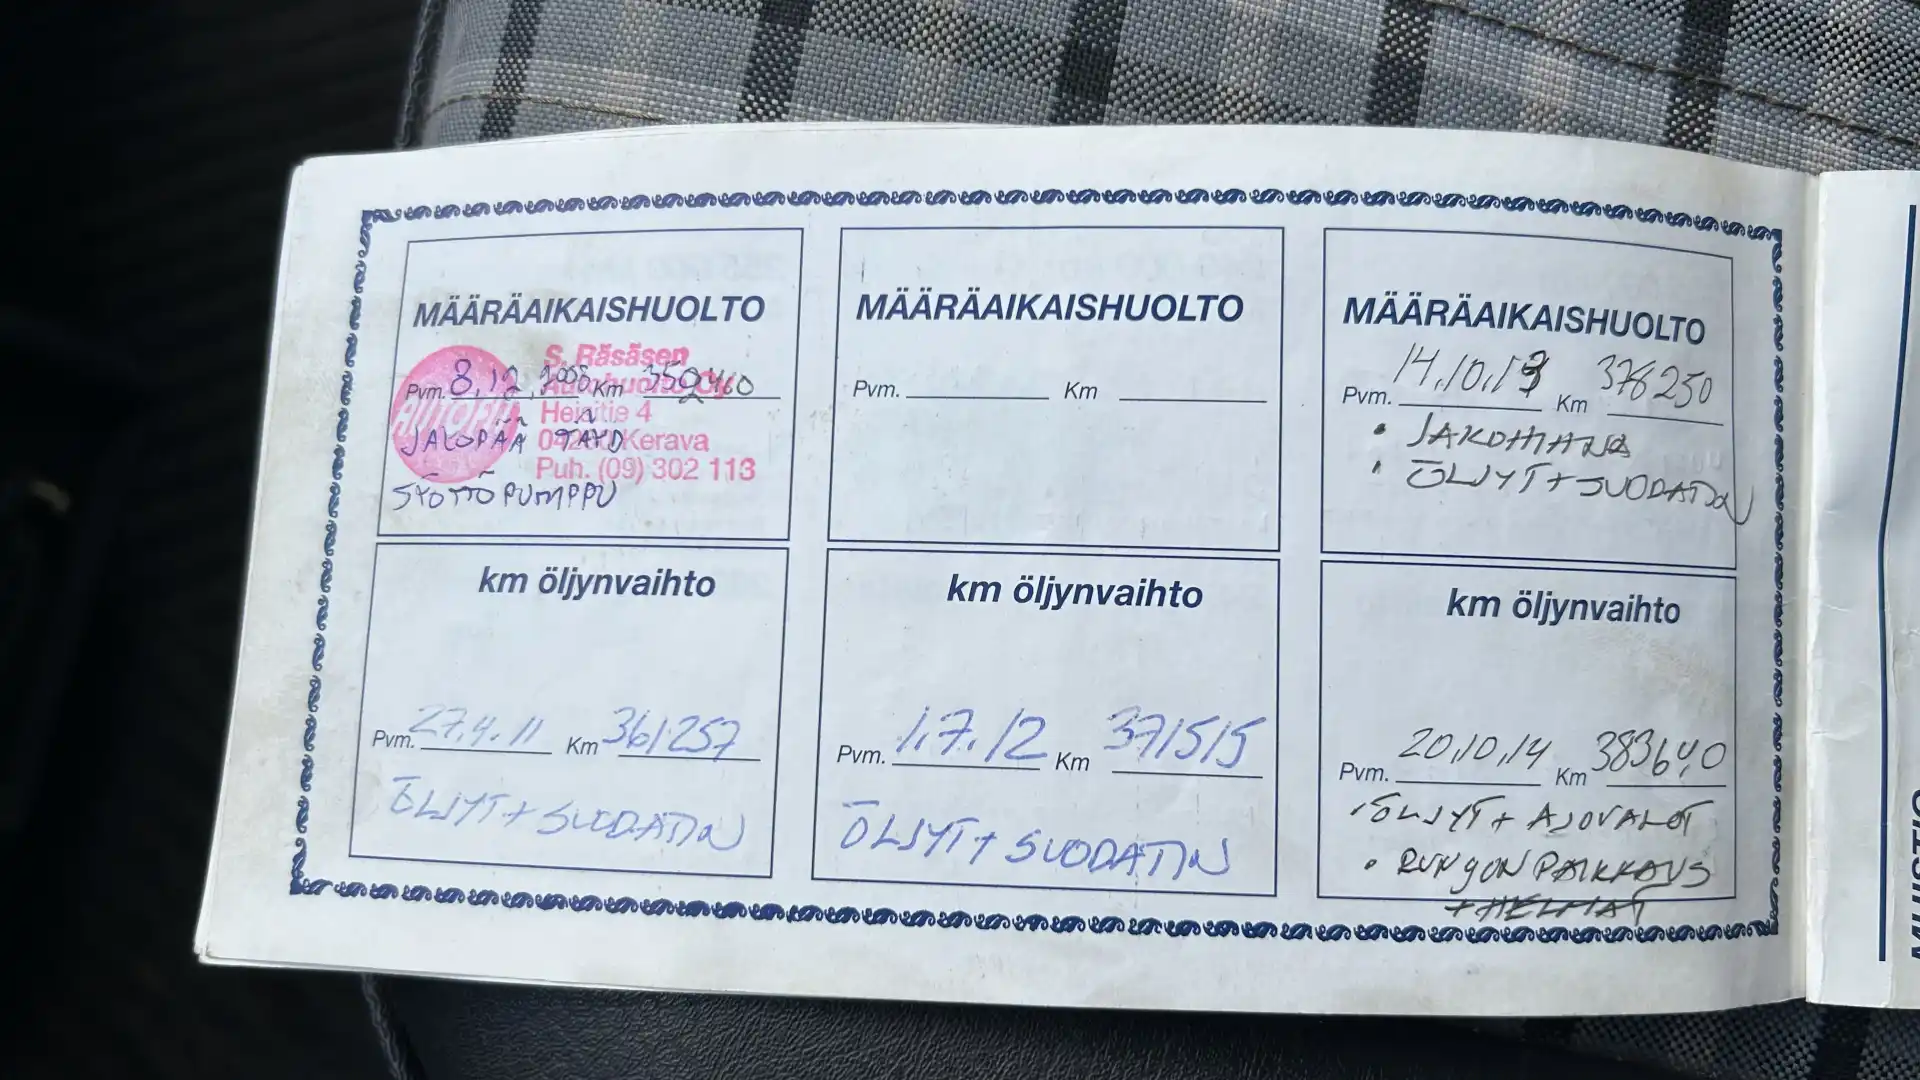 MÄÄRÄAIKAISHUOLTO
S. Räsäsen
Pvm. 8.12.2008 Km 350460
Autohuolto Oy
Heinitie 4
Kerava
Puh. (09) 302 113
SYÖTTÖPUMPPU
MÄÄRÄAIKAISHUOLTO
Pvm. Km
MÄÄRÄAIKAISHUOLTO
Pvm. 14.10.13 Km 378250
• JAKOHIHNA
• ÖLJYT + SUODATIN
km öljynvaihto
Pvm. 27.4.11 Km 361257
ÖLJYT + SUODATIN
km öljynvaihto
Pvm. 1.7.12 Km 371515
ÖLJYT + SUODATIN
km öljynvaihto
Pvm. 20.10.14 Km 383640
• ÖLJYT + AJOVALOT
• RUNGON PAIKKAUS
+ HELMAT